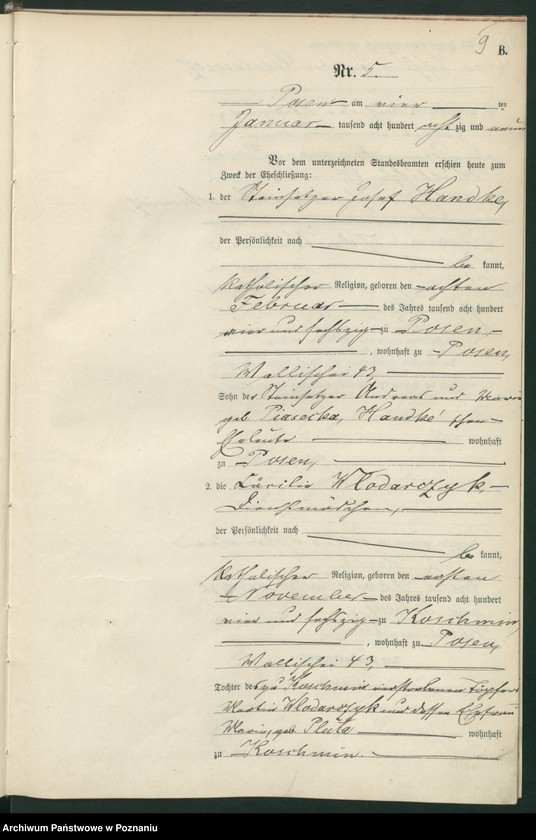 9
B.
Nr. 5.
Posen am vier ten
Januar tausend acht hundert achtzig und neun
Vor dem unterzeichneten Standesbeamten erschien heute zum
Zweck der Eheschließung:
1. der Steinsetzer Josef Handke,
der Persönlichkeit nach
be kannt,
katholischer Religion, geboren den achten
Februar des Jahres tausend acht hundert
vier und sechszig zu Posen,
, wohnhaft zu Posen,
Wallischei 43,
Sohn der Steinsetzer Andreas und Marie
geb. Piasecka, Handke'schen
Eheleute wohnhaft
zu Posen,
2. die Cäcilie Wlodarczyk,
Dienstmädchen,
der Persönlichkeit nach
be kannt,
katholischer Religion, geboren den ersten
November des Jahres tausend acht hundert
vier und sechszig zu Koschmin,
, wohnhaft zu Posen,
Wallischei 43,
Tochter des zu Koschmin verstorbenen Töpfers
Martin Wlodarczyk und dessen Ehefrau
Marie, geb. Pluta wohnhaft
zu Koschmin.
Archiwum Państwowe w Poznaniu